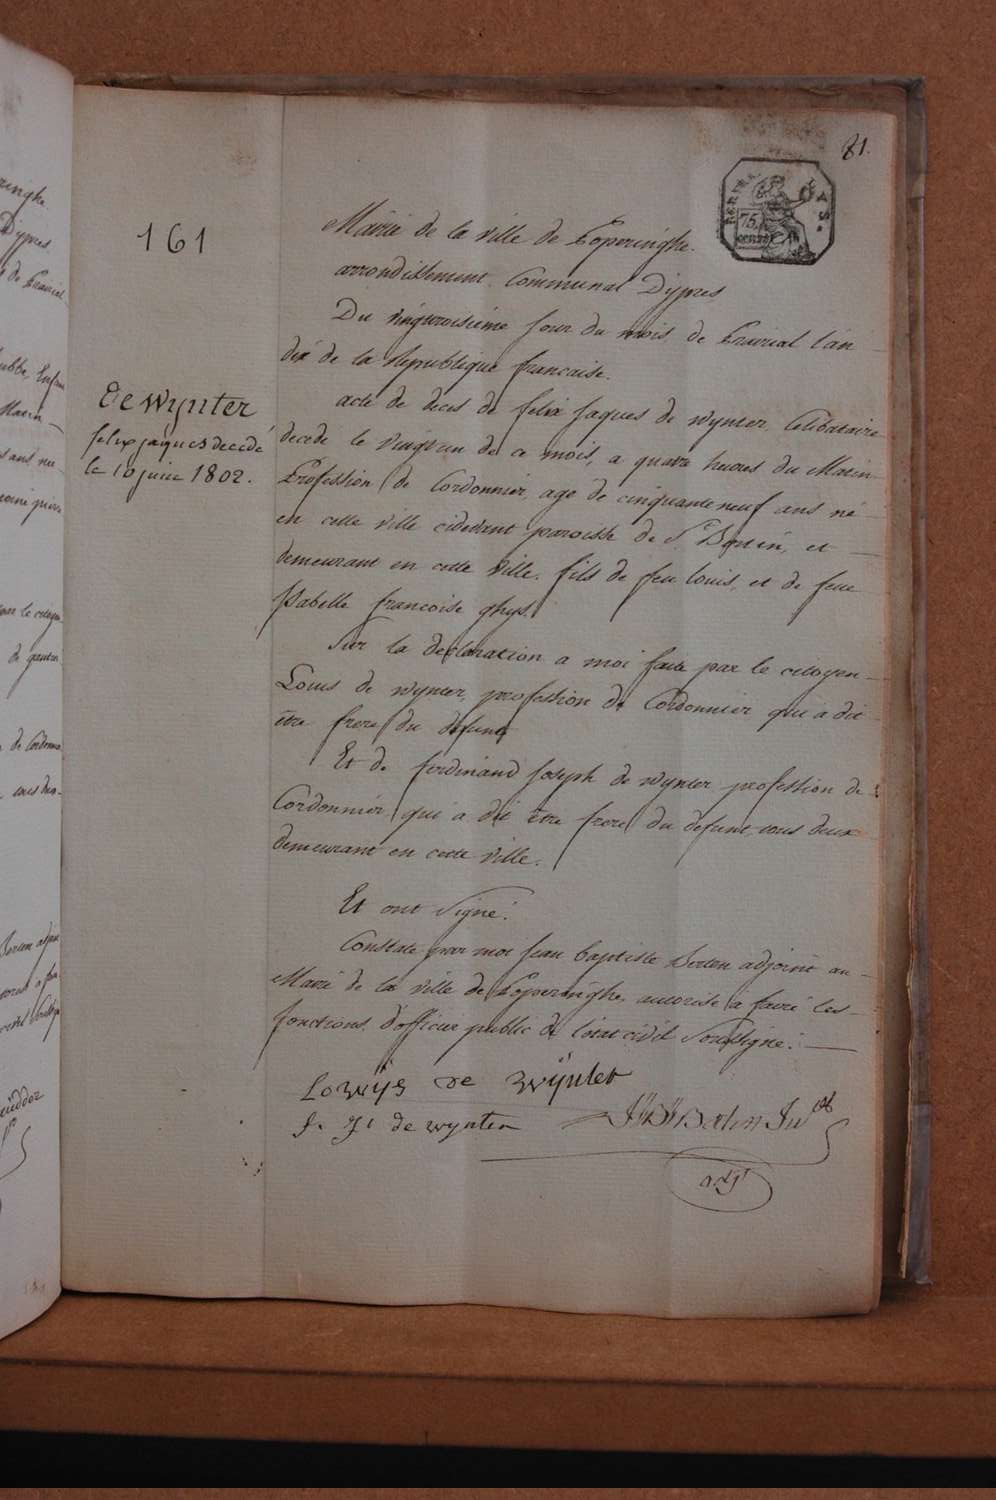 81.
161
75 cents
Mairie de la ville de Poperinghe.
arrondissement Communal Dÿpres
Du vingtroisieme jour du mois de Prairial l'an
dix de la Republique francaise.
De Wynter
felix jaques decedé
le 10 juin 1802.
acte de deces de felix jaques de wynter, Celibataire
decede le vingtun de ce mois, a quatre heures du Matin
Profession de Cordonnier, age de cinquante neuf ans né
en cette ville cidevant paroisse de St. Bertin, et
demeurant en cette ville. fils de feu louis, et de feue
Isabelle francoise ghys.
Sur la declaration a moi faite par le citoyen
Louis de wynter, profession de Cordonnier qui a dit
être frere du defunt
Et de ferdinand Joseph de wynter profession de
Cordonnier qui a dit être frere du defunt tous deux
demeurant en cette ville.
Et ont signé.
Constaté par moi jean baptiste Berten adjoint au
Maire de la ville de Poperinghe, autorisé a faire les
fonctions d'officier public de l'etat civil Soussigné.
Lowÿs de wÿnter
f. Js de wynter
adjt